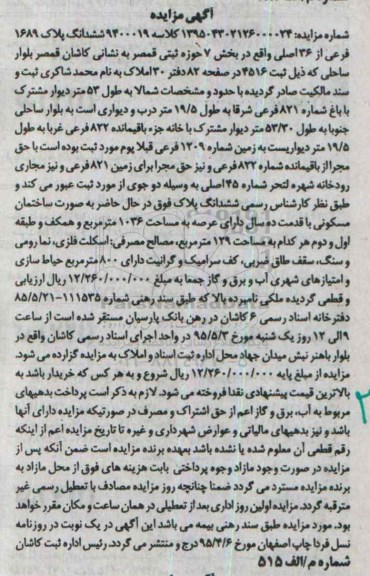 آگهی مزایده
شماره مزایده: ۱۳۹۵۰۴۳۰۲۱۲۶۰۰۰۰۲۴ کلاسه ۹۴۰۰۰۱۹ ششدانگ پلاک ۱۶۸۹
فرعی از ۳۶ اصلی واقع در بخش ۷ حوزه ثبتی قمصر به نشانی کاشان قمصر بلوار
ساحلی که ذیل ثبت ۴۵۱۶ در صفحه ۸۲ دفتر ۳۰ املاک به نام محمد شاکری ثبت و
سند مالکیت صادر گردیده با حدود و مشخصات شمالا به طول ۵۳ متر دیوار مشترک
با باغ شماره ۸۲۱ فرعی شرقا به طول ۱۹/۵ متر درب و دیواری است به بلوار ساحلی
جنوبا به طول ۵۳/۳۰ متر دیوار مشترک با خانه جزء باقیمانده ۸۲۲ فرعی غربا به طول
۱۹/۵ متر دیواریست به زمین شماره ۱۲۰۹ فرعی قبلا پوم مورد ثبت بوده است با حق
مجرا از باقیمانده شماره ۸۲۲ فرعی و نیز حق مجرا برای زمین ۸۲۱ فرعی و نیز مجاری
رودخانه شهره لتحر شماره ۴۵ اصلی به وسیله دو جوی از مورد ثبت عبور می کند و
طبق نظر کارشناس رسمی ششدانگ پلاک فوق در حال حاضر به صورت ساختمان
مسکونی با قدمت ده سال دارای عرصه به مساحت ۱۰۳۶ مترمربع و همکف و طبقه
اول و دوم هر کدام به مساحت ۱۲۹ مترمربع، مصالح مصرفی: اسکلت فلزی، نما رومی
و سنگ، سقف طاق ضربی، کف سرامیک و گرانیت دارای ۸۰۰ مترمربع حیاط سازی
و امتیازهای شهری آب و برق و گاز جمعا به مبلغ ۱۲/۲۶۰/۰۰۰/۰۰۰ ریال ارزیابی
و قطعی گردیده ملکی نامبرده بالا که طبق سند رهنی شماره ۱۱۱۵۳۵-۸۵/۵/۲۱
دفترخانه اسناد رسمی ۶ کاشان در رهن بانک پارسیان مستقر شده است از ساعت
۹ الی ۱۲ روز یک شنبه مورخ ۹۵/۵/۳ در واحد اجرای اسناد رسمی کاشان واقع در
بلوار باهنر نبش میدان جهاد محل اداره ثبت اسناد و املاک به مزایده گزارده می شود.
مزایده از مبلغ پایه ۱۲/۲۶۰/۰۰۰/۰۰۰ ریال شروع و به هر کس که خریدار باشد به
بالاترین قیمت پیشنهادی نقدا فروخته می شود. لازم به ذکر است پرداخت بدهیهای
مربوط به آب، برق و گاز اعم از حق اشتراک و مصرف در صورتیکه مزایده دارای آنها
باشد و نیز بدهیهای مالیاتی و عوارض شهرداری و غیره تا تاریخ مزایده اعم از اینکه
رقم قطعی آن معلوم شده یا نشده باشد بعهده برنده مزایده است ضمن آنکه پس از
مزایده در صورت وجود مازاد وجوه پرداختی بابت هزینه های فوق از محل مازاد به
برنده مزایده مسترد می گردد ضمنا چنانچه روز مزایده مصادف با تعطیل رسمی غیر
مترقبه گردد. مزایده اولین روز اداری بعد از تعطیلی در همان ساعت و مکان مقرر خواهد
بود. مورد مزایده طبق سند رهنی بیمه می باشد این آگهی در یک نوبت در روزنامه
نسل فردا چاپ اصفهان مورخ ۹۵/۴/۶ درج و منتشر می گردد. رئیس اداره ثبت کاشان
شماره م/الف ۵۱۵